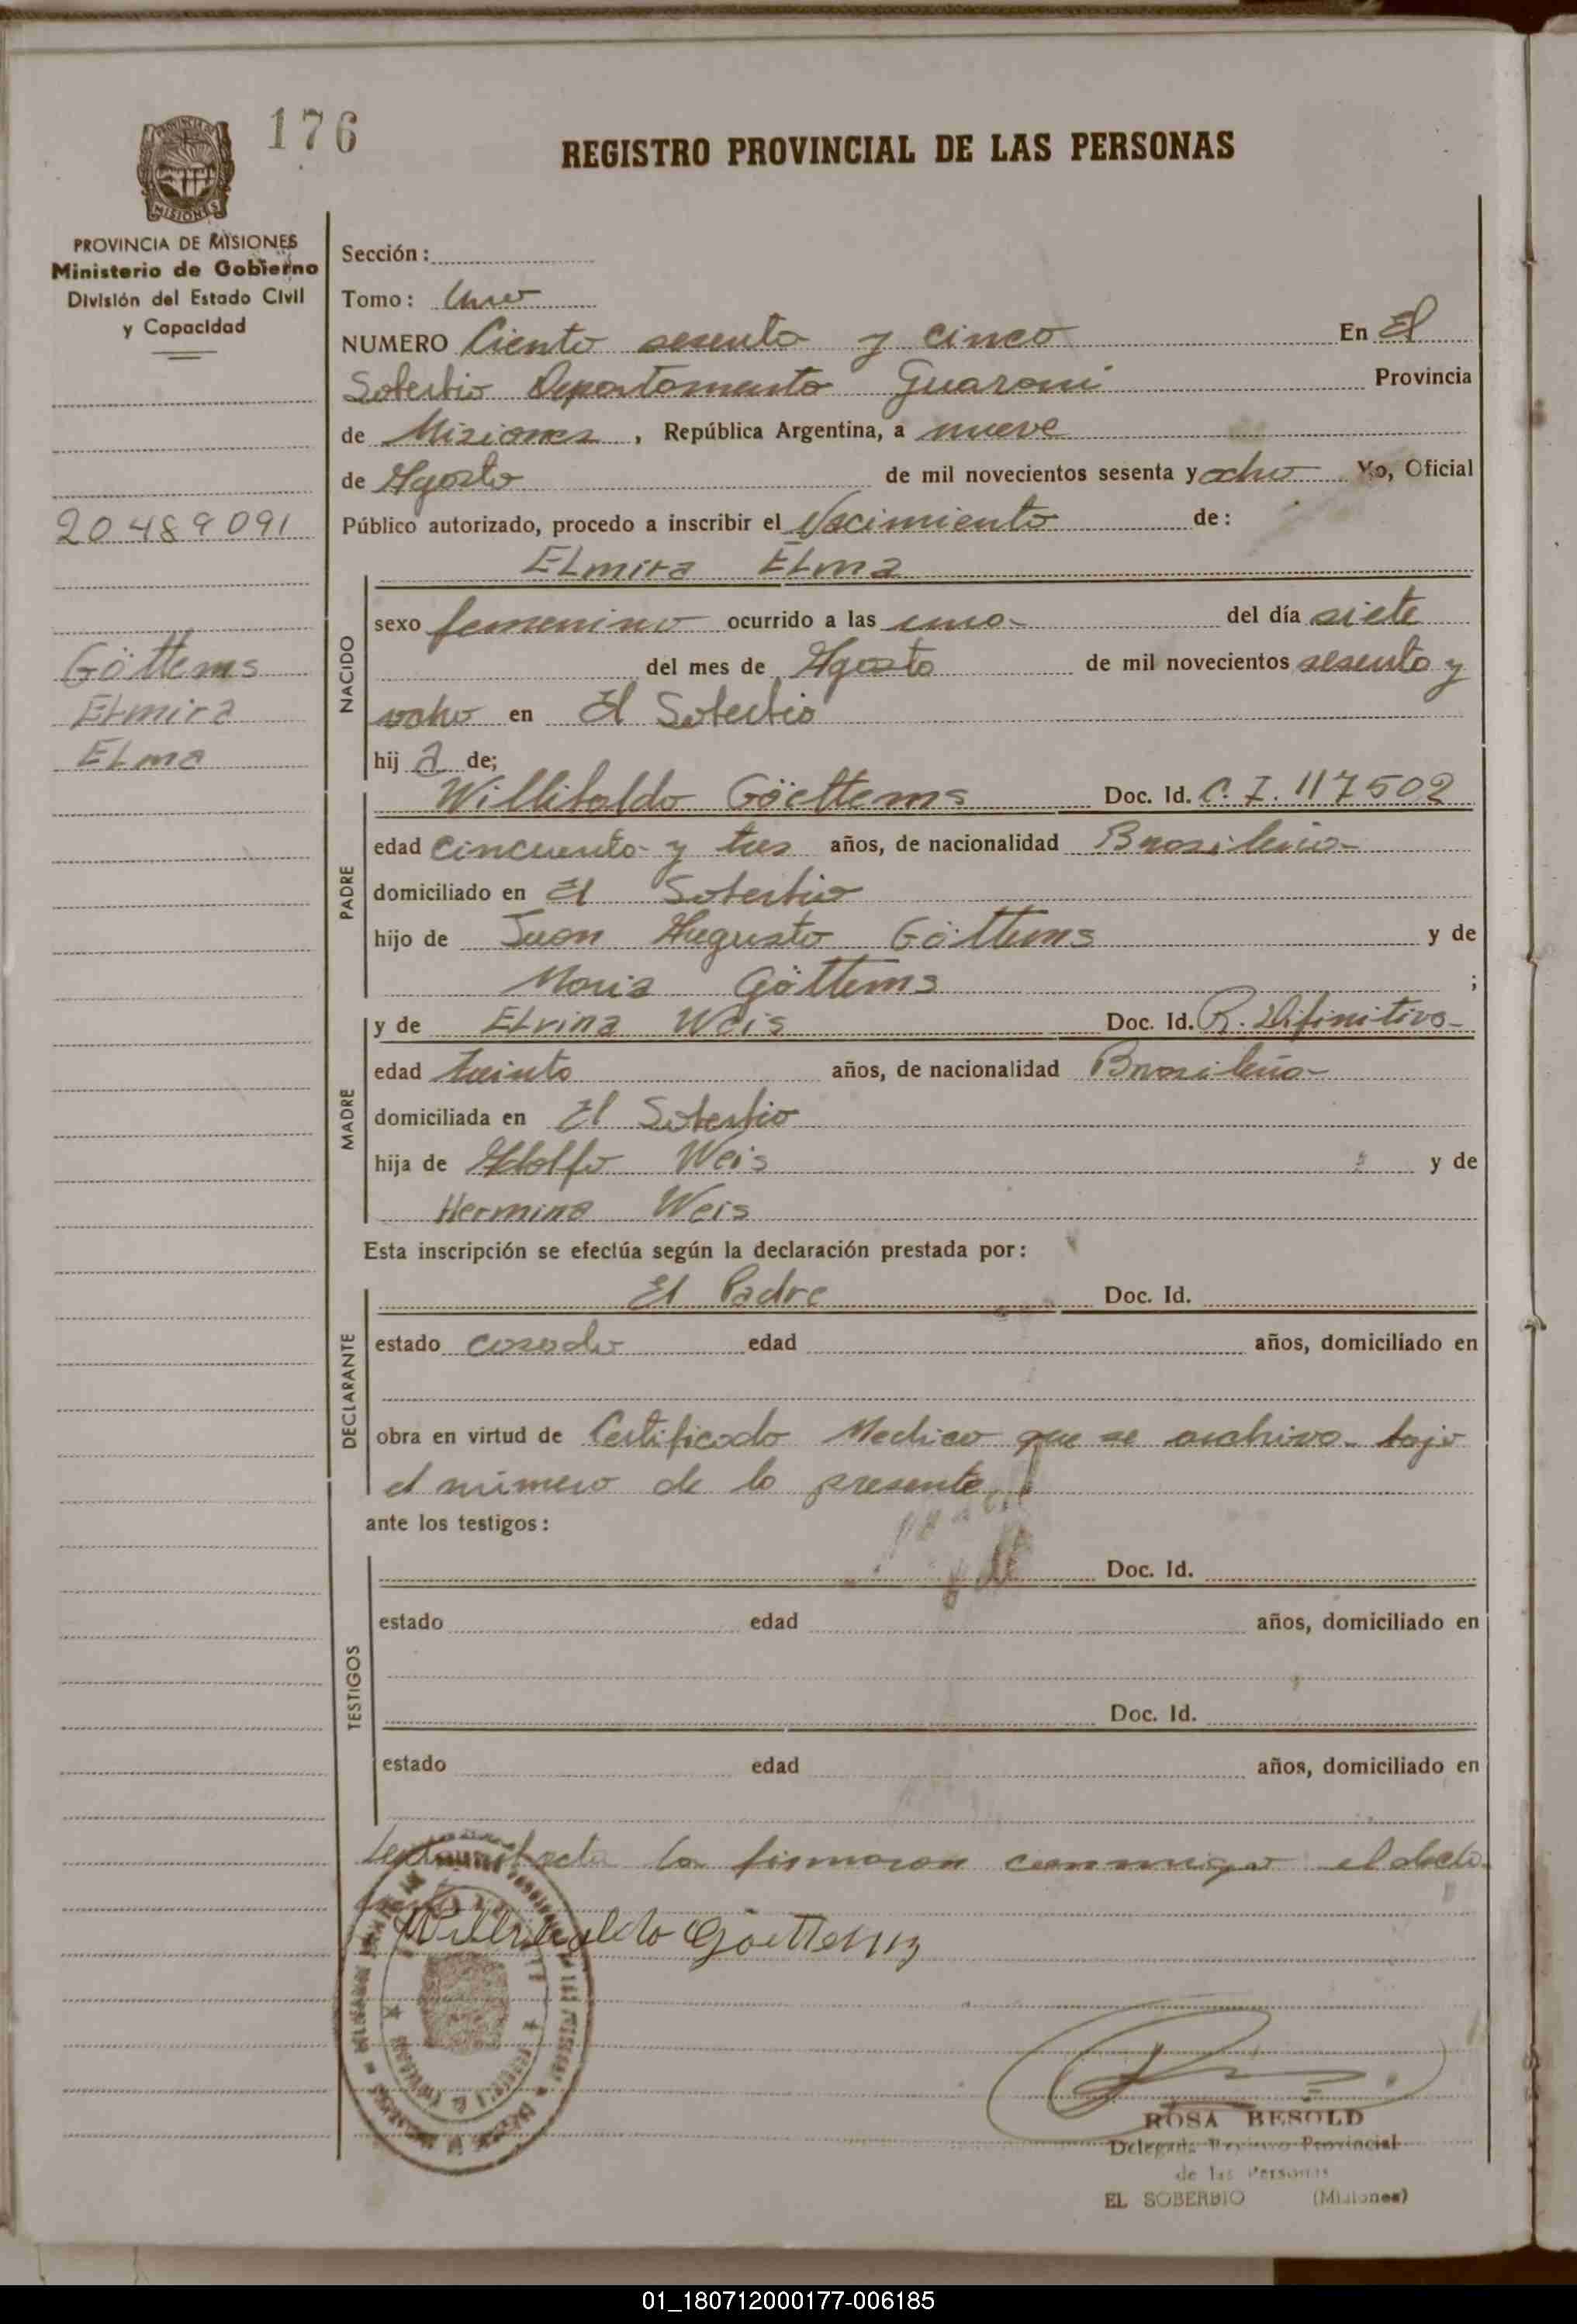 176
REGISTRO PROVINCIAL DE LAS PERSONAS
PROVINCIA DE MISIONES
Ministerio de Gobierno
División del Estado Civil
y Capacidad
20.489.091
Göttems
Elmira
Elma
Sección:
Tomo: Uno
NUMERO Ciento sesenta y cinco En El
Soberbio Departamento Guarani Provincia
de Misiones, República Argentina, a nueve
de Agosto de mil novecientos sesenta y ocho Yo, Oficial
Público autorizado, procedo a inscribir el Nacimiento de:
Elmira Elma
NACIDO
sexo femenino ocurrido a las una del día siete
del mes de Agosto de mil novecientos sesenta y
ocho en El Soberbio
hij a de;
PADRE
Willibaldo Göettems Doc. Id. C.I. 117502
edad cincuenta y tres años, de nacionalidad Brasileña
domiciliado en El Soberbio
hijo de Juan Augusto Göttems y de
Maria Göttems ;
MADRE
y de Elvina Weis Doc. Id. R. Difinitiva
edad treinta años, de nacionalidad Brasileña
domiciliada en El Soberbio
hija de Adolfo Weis y de
Hermina Weis
Esta inscripción se efectúa según la declaración prestada por:
DECLARANTE
El Padre Doc. Id.
estado casado edad años, domiciliado en
obra en virtud de Certificado Medico que se archiva bajo
el número de la presente
ante los testigos:
TESTIGOS
Doc. Id.
estado edad años, domiciliado en
Doc. Id.
estado edad años, domiciliado en
acta la firmaron conmigo el decla
Willibaldo Goettems
ROSA BESOLD
Delegada Registro Provincial
de las Personas
EL SOBERBIO (Misiones)
01_180712000177-006185